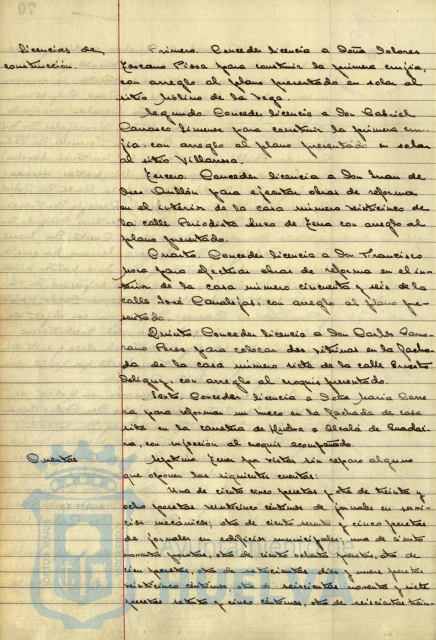 Licencias de
construcción.
Primero. Conceder licencia a Doña Dolores
Toscano Piosa para construir la primera crujía,
con arreglo al plano presentado en solar al
sitio Molino de la Vega.
Segundo. Conceder licencia a Don Gabriel
Carrasco Jimenez para construir la primera cru-
jía, con arreglo al plano presentado en solar
al sitio Villanua.
Tercero. Conceder licencia a Don Juan de
Dios Aullón para ejecutar obras de reforma
en el interior de la casa número veinticinco de
la calle Periodista Luca de Tena con arreglo al
plano presentado.
Cuarto. Conceder licencia a Don Francisco
Mora para efectuar obras de reforma en el in-
terior de la casa número cincuenta y seis de la
calle José Canalejas, con arreglo al plano pre-
sentado.
Quinto. Conceder licencia a Don Carlos Camo-
rano Perez para colocar dos vitrinas en la facha-
da de la casa número siete de la calle Ernesto
Deligny, con arreglo al croquis presentado.
Sexto. Conceder licencia a Doña María Carre-
ra para reformar un hueco en la fachada de casa
sita en la carretera de Huelva a Alcalá de Guadai-
ra, con sujección al croquis acompañado.
Cuentas
Septimo. Tener por vistas sin reparo alguno
que oponer las siguientes cuentas:
Una de ciento cinco pesetas y otra de treinta y
ocho pesetas veinticinco céntimos de jornales en servi-
cios mecánicos; otra de ciento setenta y cinco pesetas
de jornales en edificios municipales; una de ciento
noventa pesetas, otra de ciento ochenta pesetas, otra de
cien pesetas, otra de setecientas diez y nueve pesetas
veinticinco céntimos, otra de seiscientas noventa y siete
pesetas setenta y cinco céntimos, otra de seiscientas trein-